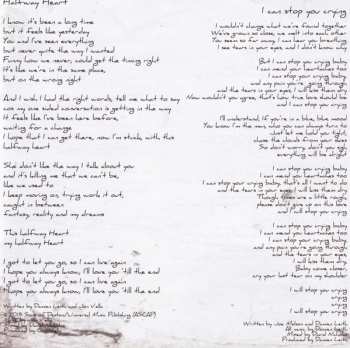 Halfway Heart
I know it's been a long time
but it feels like yesterday
You and I've seen everything
but never quite the way I wanted
Funny how we never could get the timing right
It's like we're in the same place,
but on the wrong night
And I wish I had the right words, tell me what to say
cos my one sided conversation is getting in the way
It feels like I've been here before,
waiting for a change
I hope that I can get there, now I'm stuck with this
halfway heart
She don't like the way I talk about you
and it's killing me that we can't be,
like we used to
I keep moving on, trying work it out,
caught in between
fantasy reality and my dreams
This halfway Heart
my halfway Heart
I got to let you go, so I can live again
I hope you always know, I'll love you 'till the end
I got to let you go, so I can live again
I hope you always know, I'll love you 'till the end
Written by Damien Leith and
I can stop you crying
I wouldn't change what we've found together
We've grown so close, we melt into each other
You seem so far away, I can hear you breathing
I see tears in your eyes, and I don't know why
But I can stop you crying baby
I can mend your heartaches too
I can stop your crying baby,
and any pain you're going through
and the tears in your eyes, I will kiss them dry
Now wouldn't you agree, that's how true love should be
and I can stop you crying
I'll understand, if you're in a blue, blue mood
You know I'm the man, who you can always turn to
Just let me hold you tight,
chase the clouds from your skies
So don't worry, don't you sigh
everything will be alright
I can stop you crying baby
I can mend you heartaches too
I can stop you crying baby, that's all I want to do
and the tears in your eyes I will kiss them dry
Though times are a little rough,
please don't give up on this love
and I will stop you crying
I can stop you crying baby
I can mend you heartaches too
I can stop you crying baby,
and any pain you're going through
and the tears in your eyes,
I will kiss them
Baby come closer,
cry your last tear on my shoulder
I will stop you crying
crying
crying
I will stop you crying
Written by and Damien Leith
Produced by Damien Leith